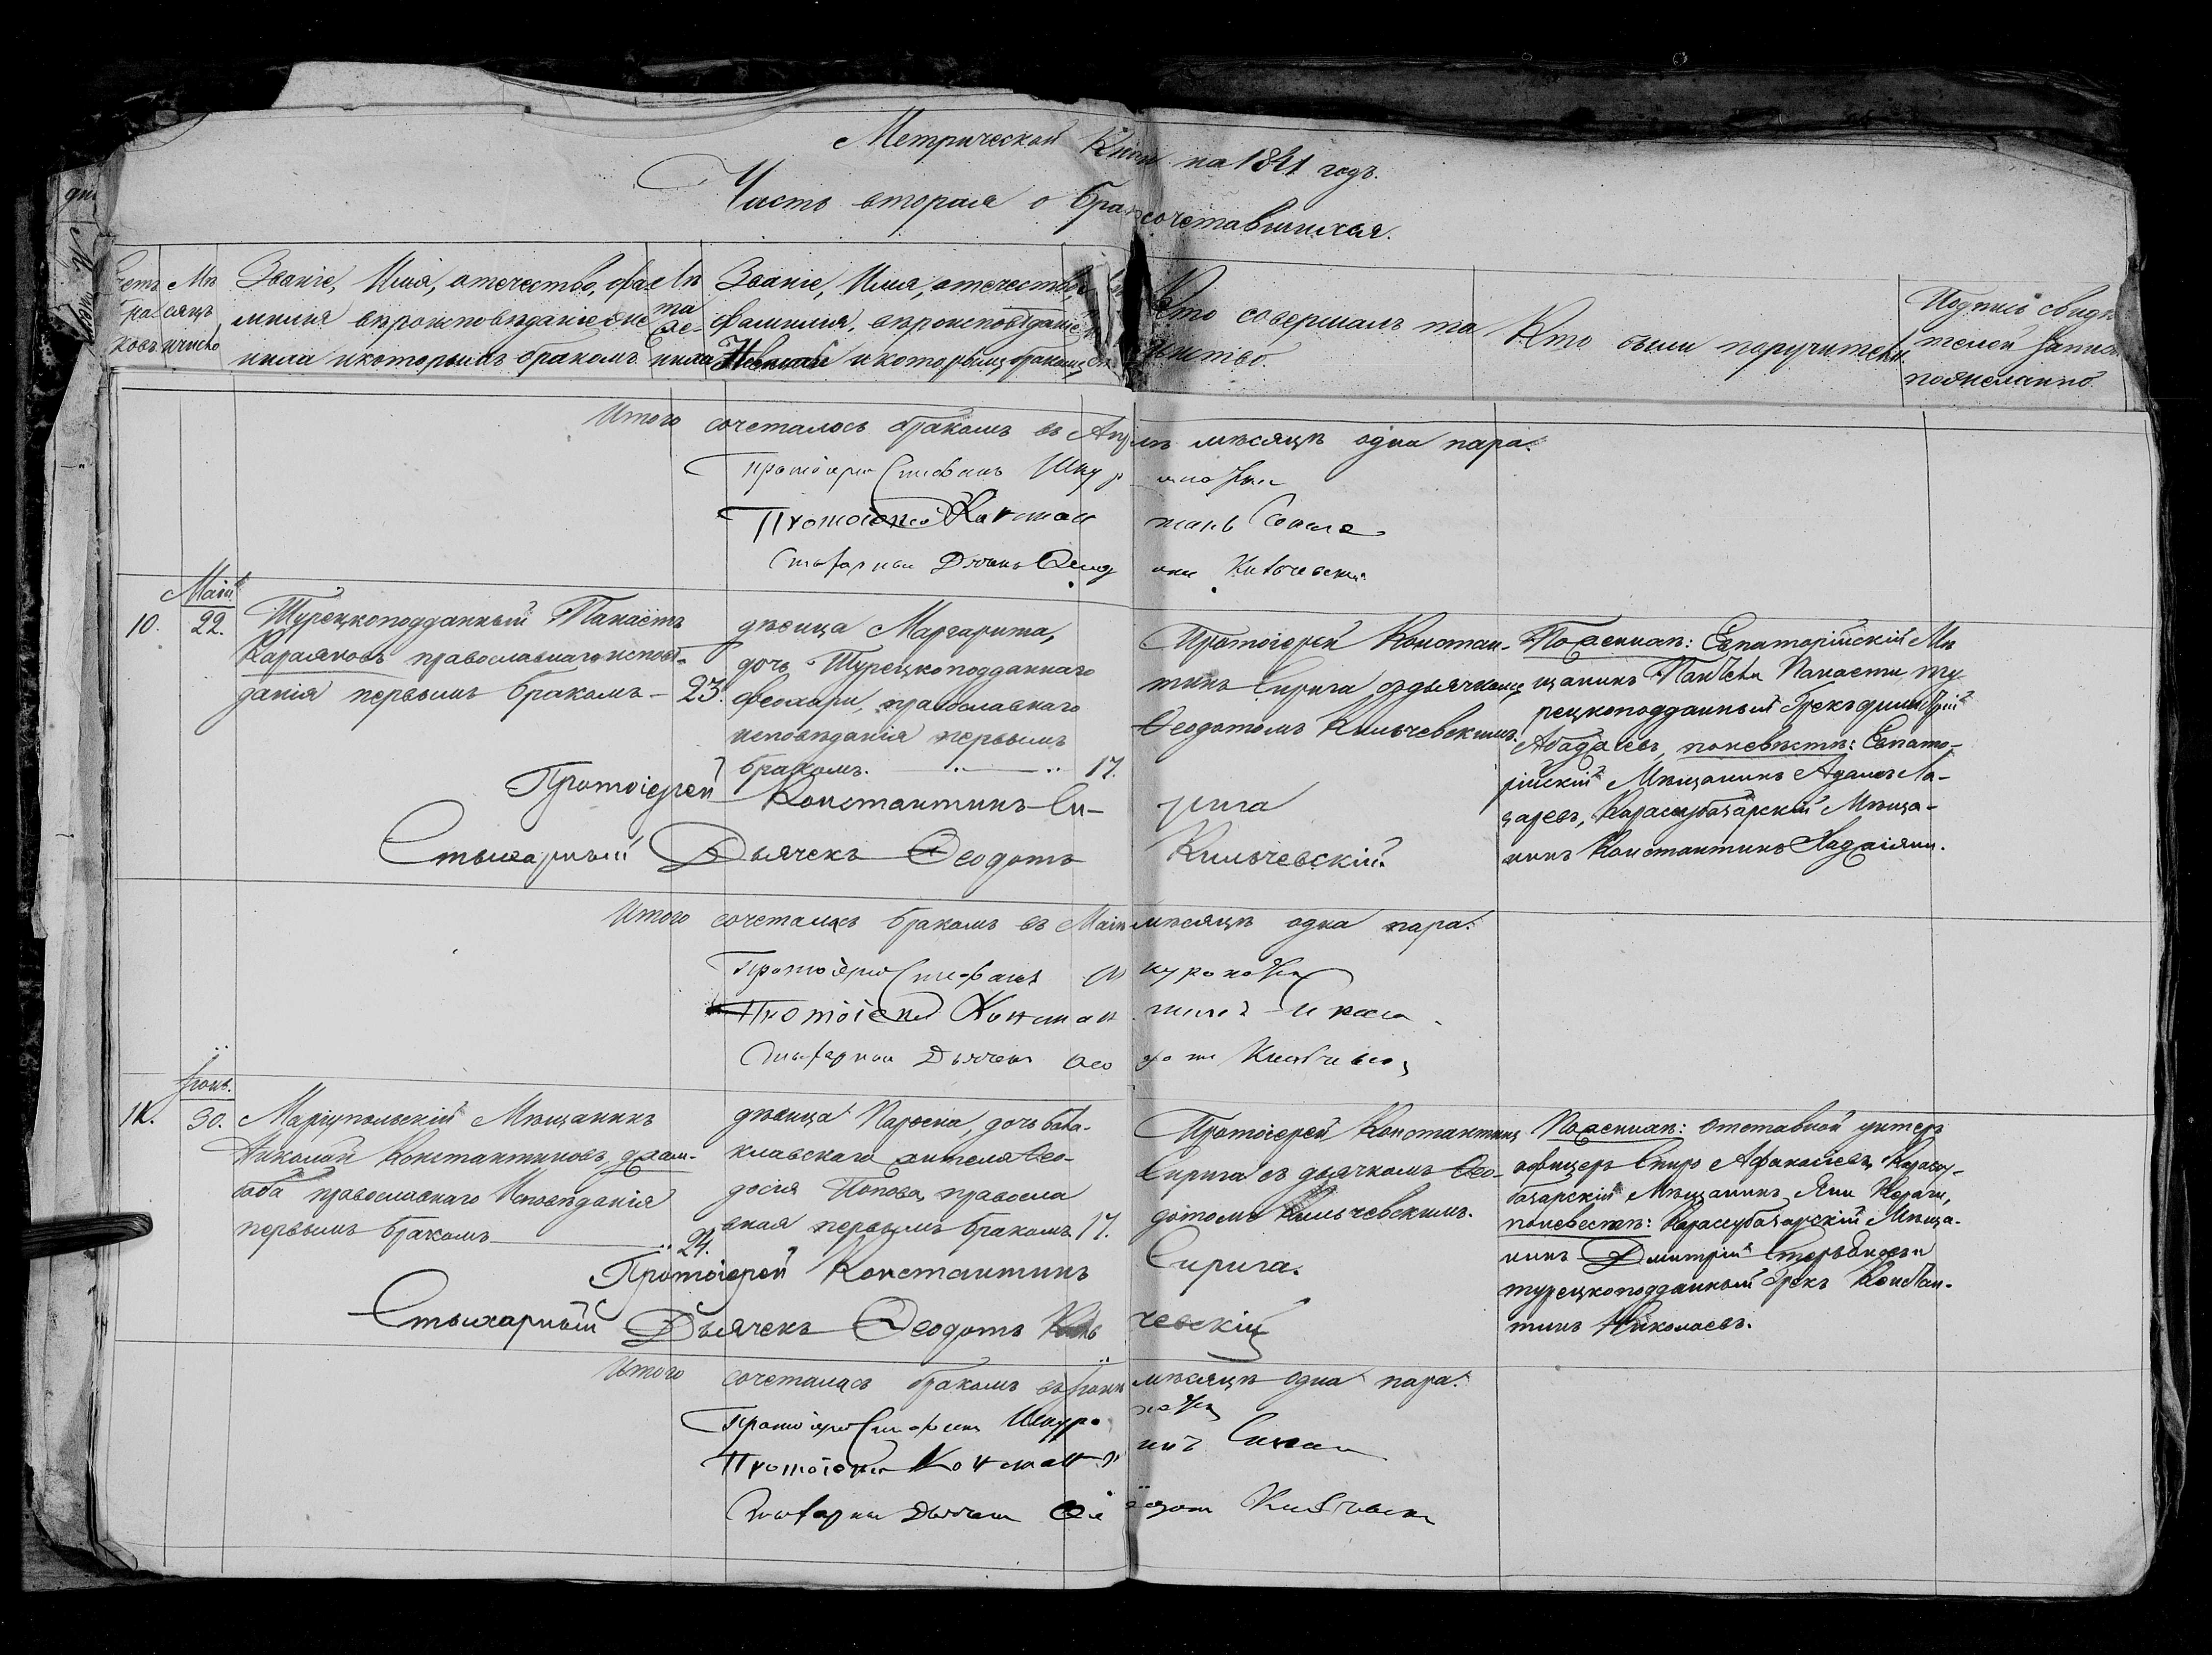 Метрической Книги на 1841 годъ.
Часть вторая о бракосочетавшихся.
Счетъ браковъ
Мѣсяцъ и число
Званіе, Имя, отечество, фамилія вѣроисповѣданіе жениха и которымъ бракомъ
Лѣта жениха
Званіе, Имя, отечество, фамилія, вѣроисповѣданіе Невѣсты и которымъ бракомъ
Кто совершалъ таинство.
Кто были поручители
Подпись свидѣтелей записи по желанію
Итого сочеталось бракомъ въ Апрѣлѣ мѣсяцѣ одна пара.
Протоіерей Стефанъ
Протоіерей Константинъ Сирига
Стихарный Дьячекъ Ѳеодотъ Кильчевскій
Маій
10.
22.
Турецкоподданный Панаетъ
православнаго исповѣ-
данія первымъ бракомъ —
23.
дѣвица Маргарита,
дочь Турецкоподданнаго
Феохари, православнаго
исповѣданія первымъ
бракомъ.
17.
Протоіерей Констан-
тинъ Сирига съ дьячкомъ
Ѳеодотомъ Кильчевскимъ.
По женихѣ: Евпаторійскій Мѣ
щанинъ Панаети ту
рецкоподданный Грекъ Димитрій
по невѣстѣ: Евпато-
рійскій Мѣщанинъ Адамъ Ла-
заревъ, Карасубазарскій Мѣща-
нинъ Константинъ
Протоіерей Константинъ Си-
рига
Стихарный Дьячекъ Ѳеодотъ
Кильчевскій
Итого сочеталась бракомъ въ Маіѣ мѣсяцѣ одна пара.
Протоіерей Стефанъ
Протоіерей Константинъ Сирига
Стихарный Дьячекъ Ѳеодотъ Кильчевскій
Іюнь.
11.
30.
Маріупольскій Мѣщанинъ
Николай Константиновъ
православнаго Исповѣданія
первымъ бракомъ
24.
дѣвица дочь бала-
клавскаго жителя Ѳео-
досія Попова, правосла
вная первымъ бракомъ
17.
Протоіерей Константинъ
Сирига съ дьячкомъ Ѳео-
дотомъ Кильчевскимъ.
По женихѣ: Отставной унтеръ
офицеръ Спиро Афанасіевъ, Карасу-
базарскій Мѣщанинъ Яни
по невестѣ: Карасубазарскій Мѣща-
нинъ Дмитрій
турецкоподданный Грекъ Констан-
тинъ Николаевъ.
Протоіерей Константинъ
Сирига.
Стихарный Дьячекъ Ѳеодотъ Киль
чевскій
Итого сочеталась бракомъ въ Іюнѣ мѣсяцѣ одна пара.
Протоіерей Стефанъ
Протоіерей Константинъ Сирига
Стихарный Дьячекъ Ѳеодотъ Кильчевскій